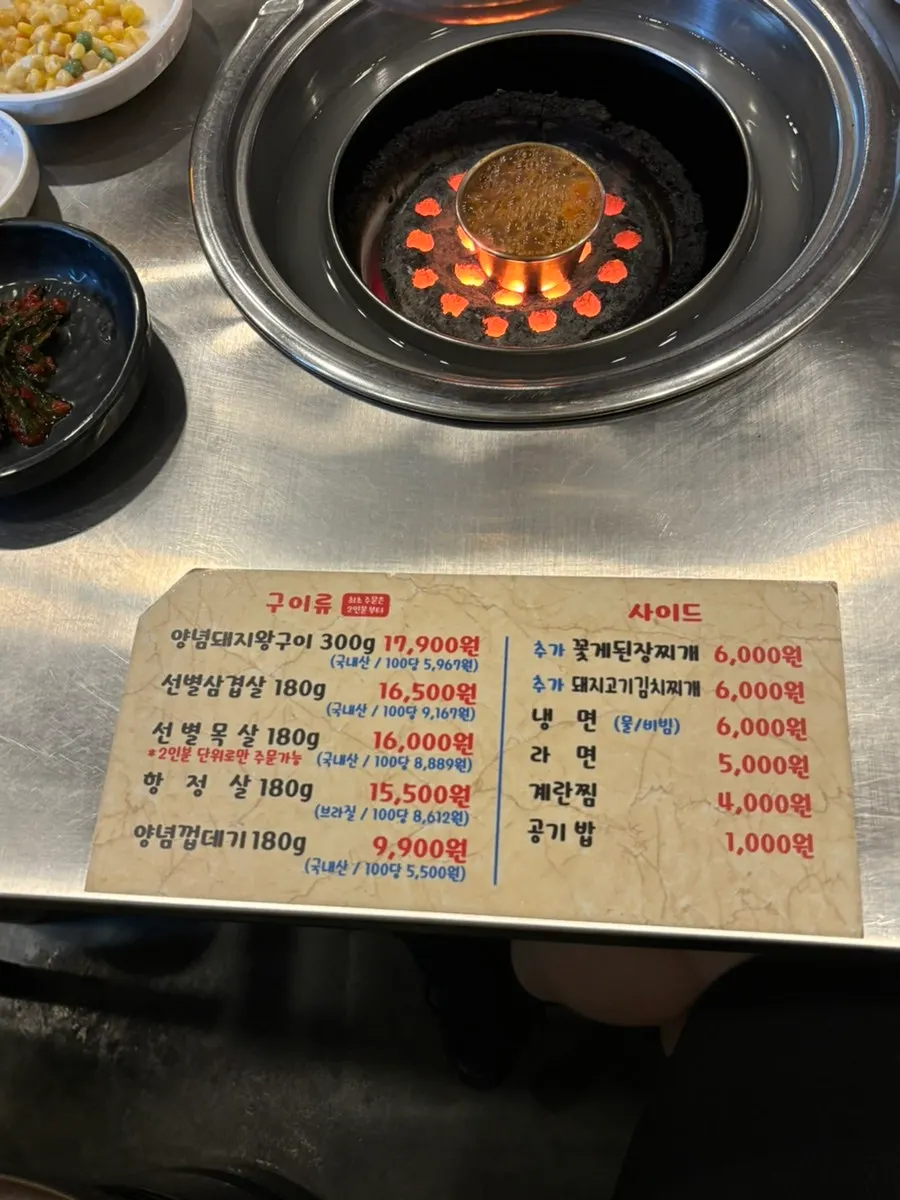 구이류 최초 주문은
2인분 부터
양념돼지왕구이 300g 17,900원
(국내산 / 100당 5,967원)
선별삼겹살 180g 16,500원
(국내산 / 100당 9,167원)
선별목살 180g 16,000원
*2인분 단위로만 주문가능 (국내산 / 100당 8,889원)
항정살 180g 15,500원
(브라질 / 100당 8,612원)
양념껍데기 180g 9,900원
(국내산 / 100당 5,500원)
사이드
추가 꽃게된장찌개 6,000원
추가 돼지고기김치찌개 6,000원
냉면 (물/비빔) 6,000원
라면 5,000원
계란찜 4,000원
공기밥 1,000원